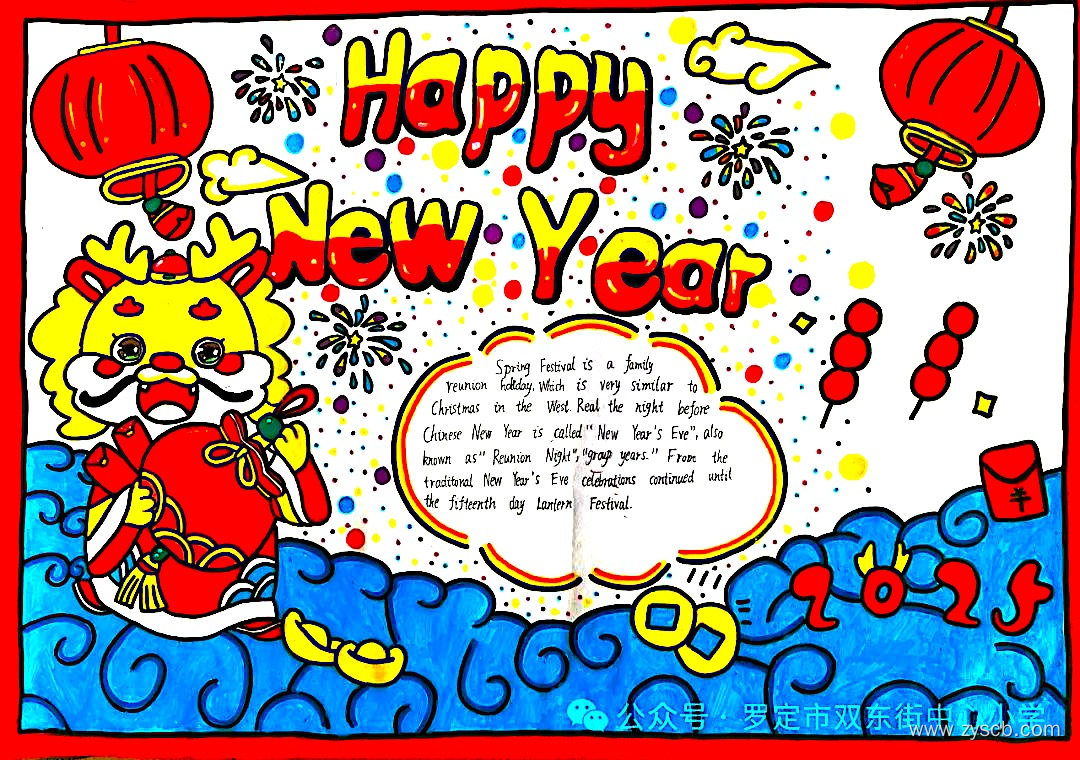 Happy
New Year
Spring Festival is a family
reunion holiday. Which is very similar to
Christmas in the West. Real the night before
Chinese New Year is called "New Year's Eve", also
known as "Reunion Night", "group years." From the
traditional New Year's Eve celebrations continued until
the fifteenth day Lantern Festival.
2025
公众号 · 罗定市双东街中心小学
www.zyscb.com